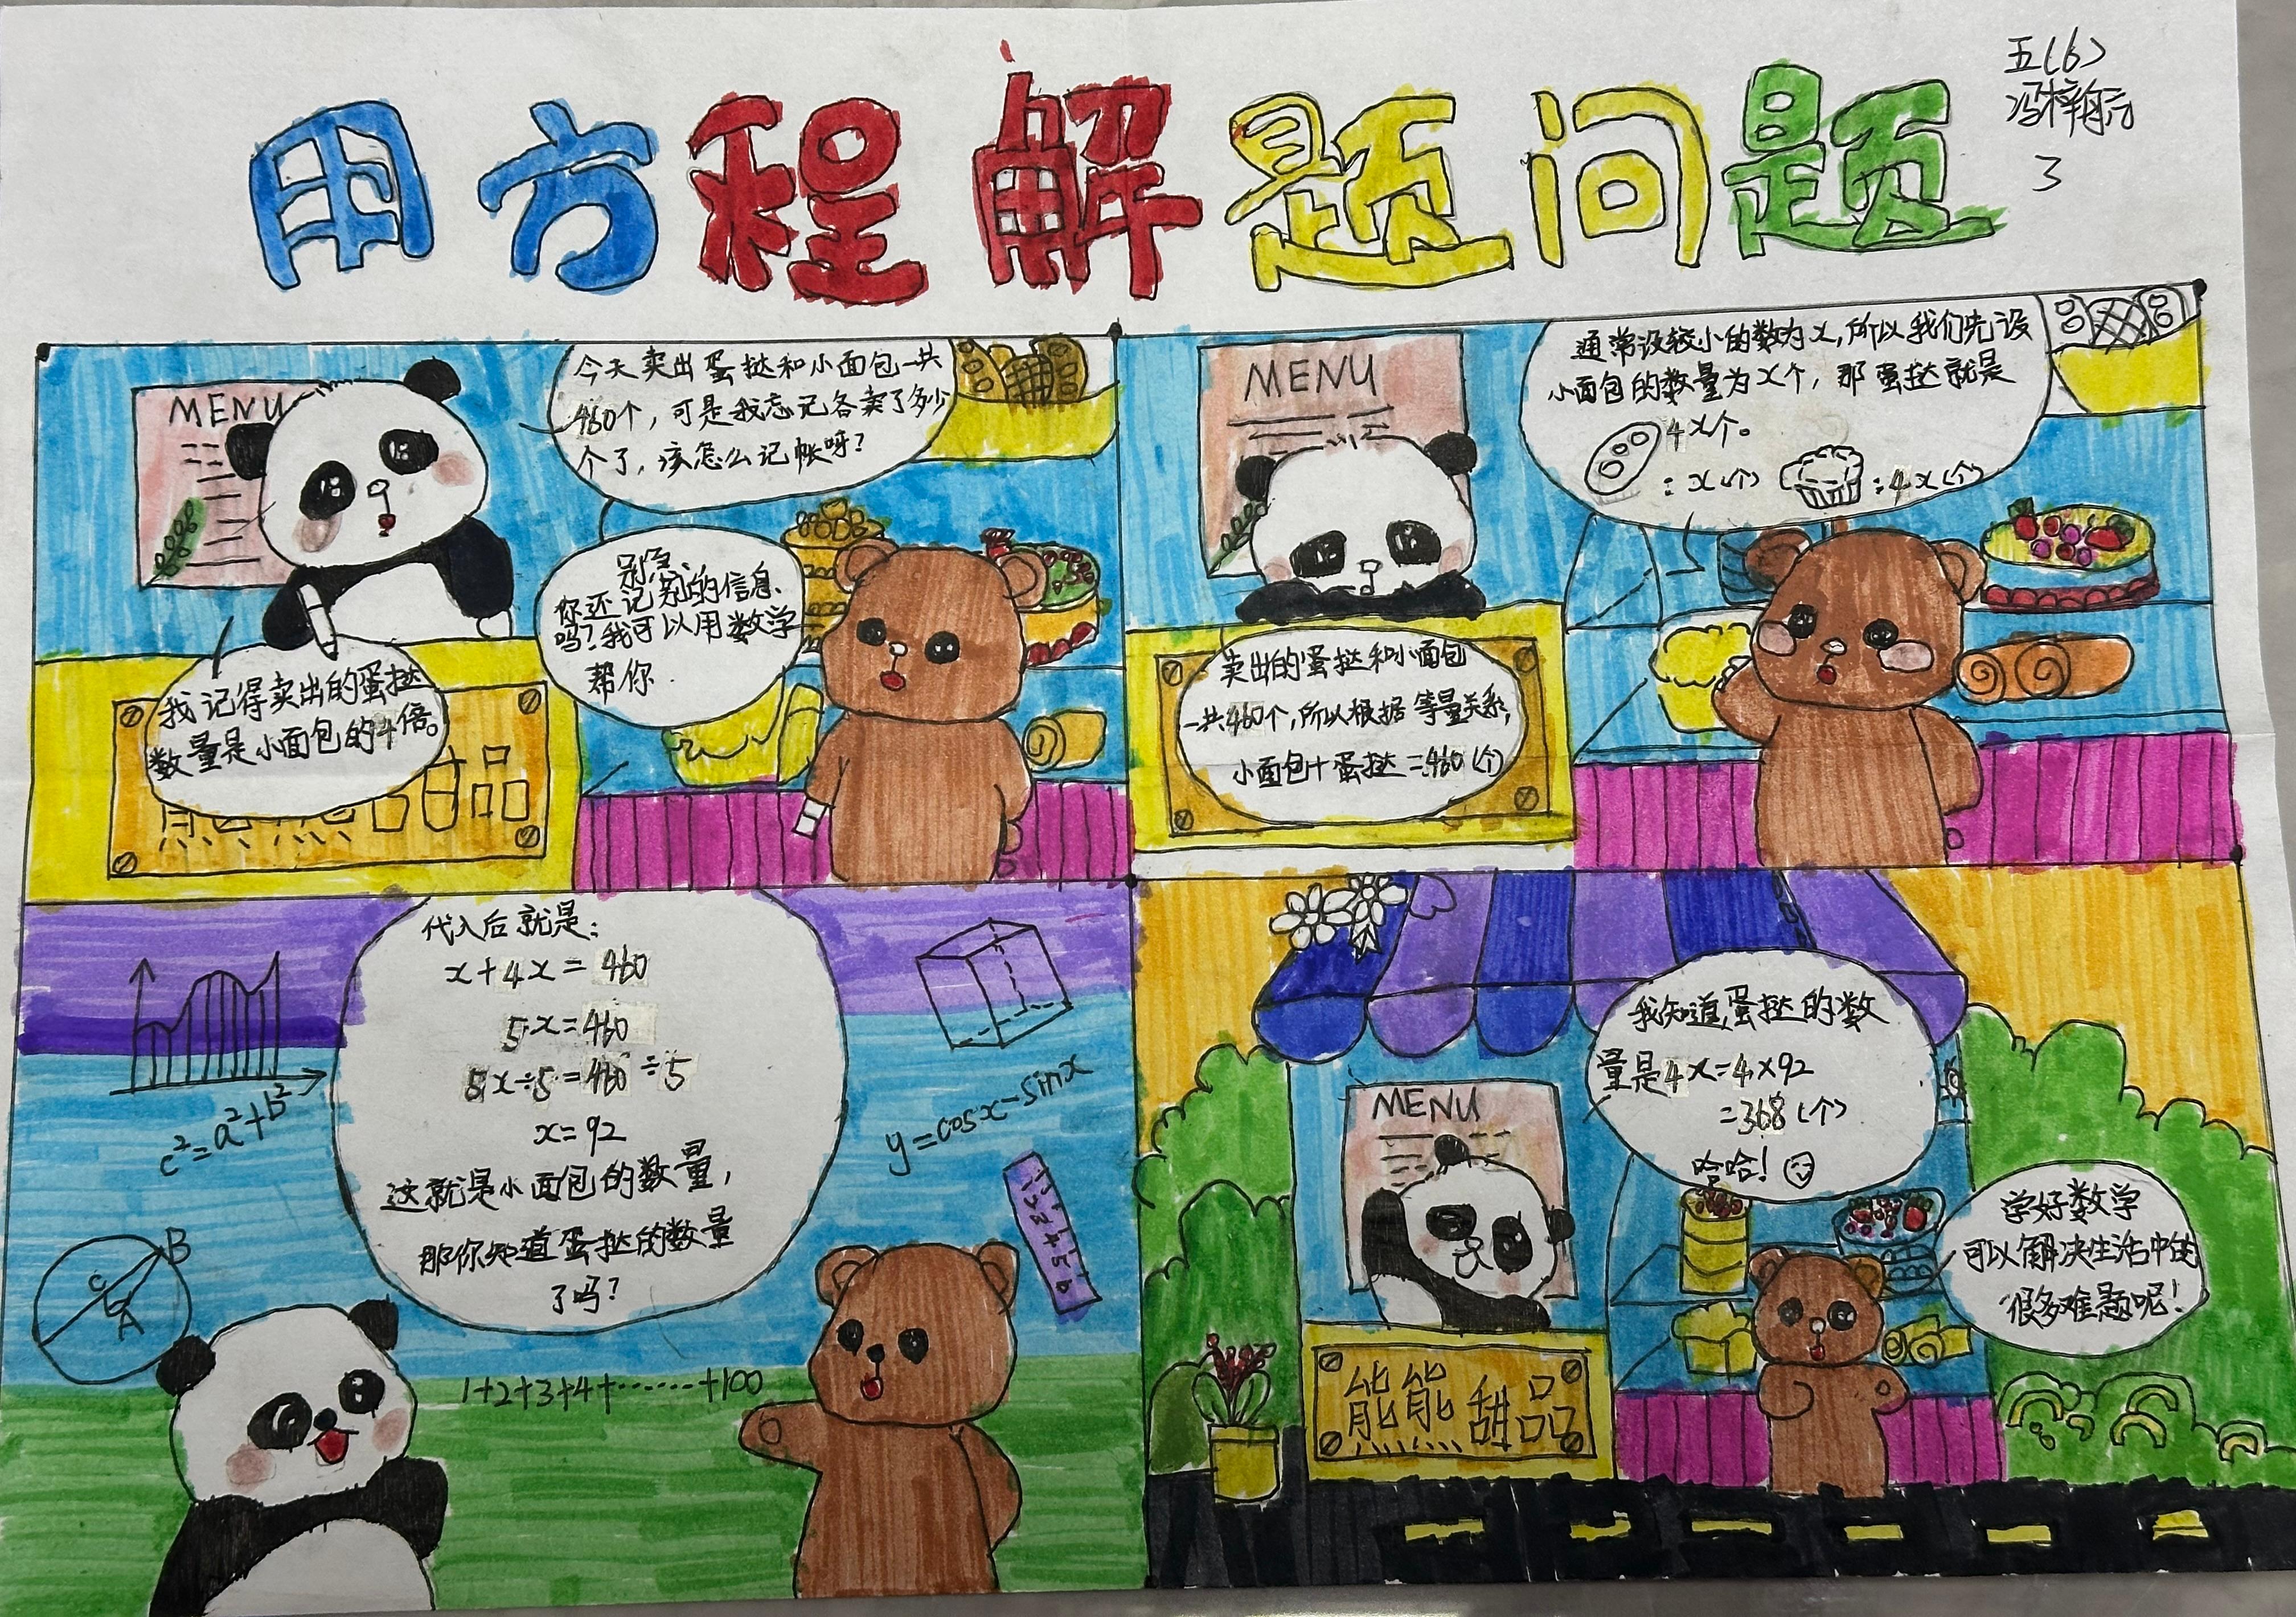 用方程解题问题
五(6)
3
MENU
今天卖出蛋挞和小面包一共
460个，可是我忘记各卖了多少
个了，该怎么记帐呀？
别急
你还记别的信息
吗？我可以用数学
帮你.
我记得卖出的蛋挞
数量是小面包的4倍。
MENU
通常设较小的数为x，所以我们先设
小面包的数量为x个，那蛋挞就是
4x个。
:x(个) :4x(个)
卖出的蛋挞和小面包
一共460个，所以根据等量关系，
小面包+蛋挞=460(个)
代入后就是：
x+4x=460
5x=460
5x÷5=460÷5
x=92
这就是小面包的数量，
那你知道蛋挞的数量
了吗？
c²=a²+b²
y=cosx-sinx
B
C
A
1+2+3+4+……+100
我知道，蛋挞的数
量是4x=4×92
=368(个)
哈哈！
MENU
学好数学
可以解决生活中的
很多难题呢！
熊熊甜品